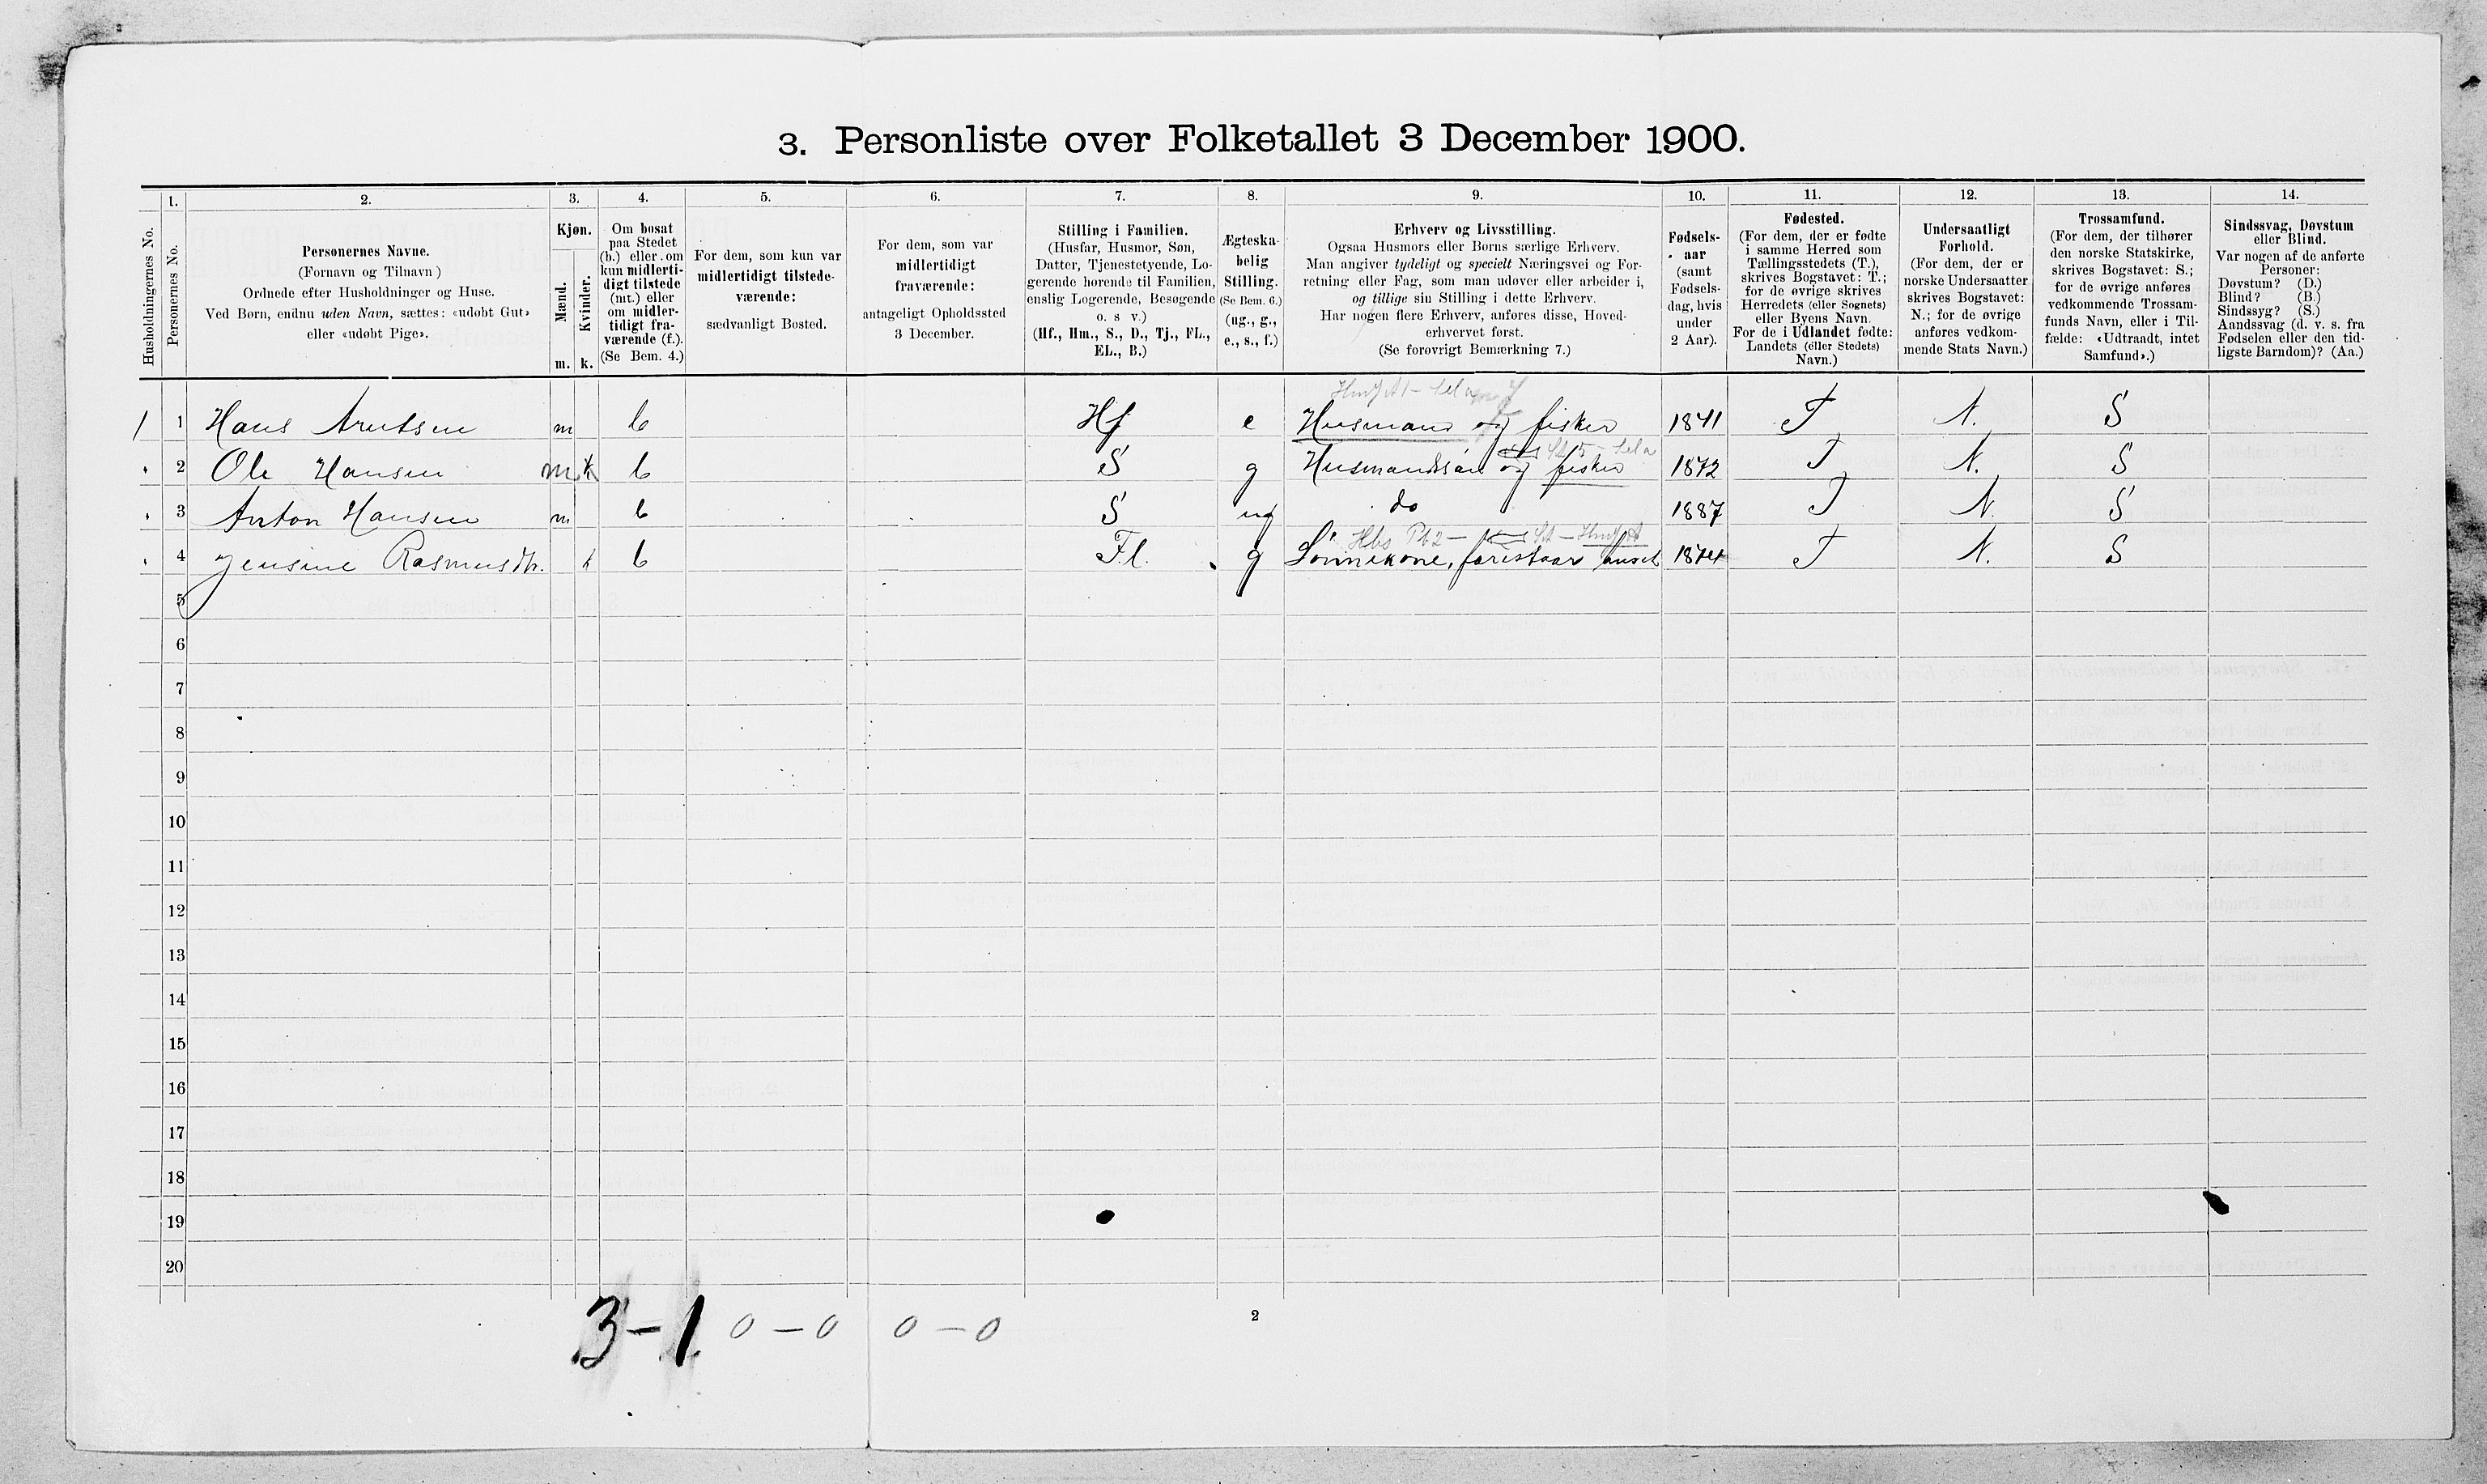 3. Personliste over Folketallet 3 December 1900.
1. 2. 3. 4. 5. 6. 7. 8. 9. 10. 11. 12. 13. 14.
Husholdningernes No.
Personernes No.
Personernes Navne.
(Fornavn og Tilnavn)
Ordnede efter Husholdninger og Huse.
Ved Børn, endnu uden Navn, sættes: «udøbt Gut»
eller «udøbt Pige».
Kjøn.
Mænd.
Kvinder.
m. k.
Om bosat
paa Stedet
(b.) eller om
kun midlerti-
digt tilstede
(mt.) eller
om midler-
tidigt fra-
værende (f.).
(Se Bem. 4.)
For dem, som kun var
midlertidigt tilstede-
værende:
sædvanligt Bosted.
For dem, som var
midlertidigt
fraværende:
antageligt Opholdssted
3 December.
Stilling i Familien.
(Husfar, Husmor, Søn,
Datter, Tjenestetyende, Lo-
gerende hørende til Familien,
enslig Logerende, Besøgende
o. s v.)
(Hf., Hm., S., D., Tj., FL.,
EL., B.)
Ægteska-
belig
Stilling.
(Se Bem. 6.)
(ug., g.,
e., s., f.)
Erhverv og Livsstilling.
Ogsaa Husmors eller Børns særlige Erhverv.
Man angiver tydeligt og specielt Næringsvei og For-
retning eller Fag, som man udøver eller arbeider i,
og tillige sin Stilling i dette Erhverv.
Har nogen flere Erhverv, anføres disse, Hoved-
erhvervet først.
(Se forøvrigt Bemærkning 7.)
Fødsels-
aar
(samt
Fødsels-
dag, hvis
under
2 Aar).
Fødested.
(For dem, der er fødte
i samme Herred som
Tællingsstedets (T.),
skrives Bogstavet: T.;
for de øvrige skrives
Herredets (eller Sognets)
eller Byens Navn.
For de i Udlandet fødte:
Landets (eller Stedets)
Navn.)
Undersaatligt
Forhold.
(For dem, der er
norske Undersaatter
skrives Bogstavet:
N.; for de øvrige
anføres vedkom-
mende Stats Navn.)
Trossamfund.
(For dem, der tilhører
den norske Statskirke,
skrives Bogstavet: S.;
for de øvrige anføres
vedkommende Trossam-
funds Navn, eller i Til-
fælde: «Udtraadt, intet
Samfund».)
Sindssvag, Døvstum
eller Blind.
Var nogen af de anførte
Personer:
Døvstum? (D.)
Blind? (B.)
Sindssyg? (S.)
Aandssvag (d. v. s. fra
Fødselen eller den tid-
ligste Barndom)? (Aa.)
1 1 Hans Arntsen m b Hf e Husmand og fisker 1841 T N. S
2 Ole Hansen m k b S g Husmandssøn og fisker 1872 T N. S
3 Anton Hansen m b S ug do 1887 T N. S
4 Jensine Rasmusdtr. k b Fl. g Sønnekone, forestaar huset 1874 T N. S
5
6
7
8
9
10
11
12
13
14
15
16
17
18
19
20
3-1 0-0 0-0
2